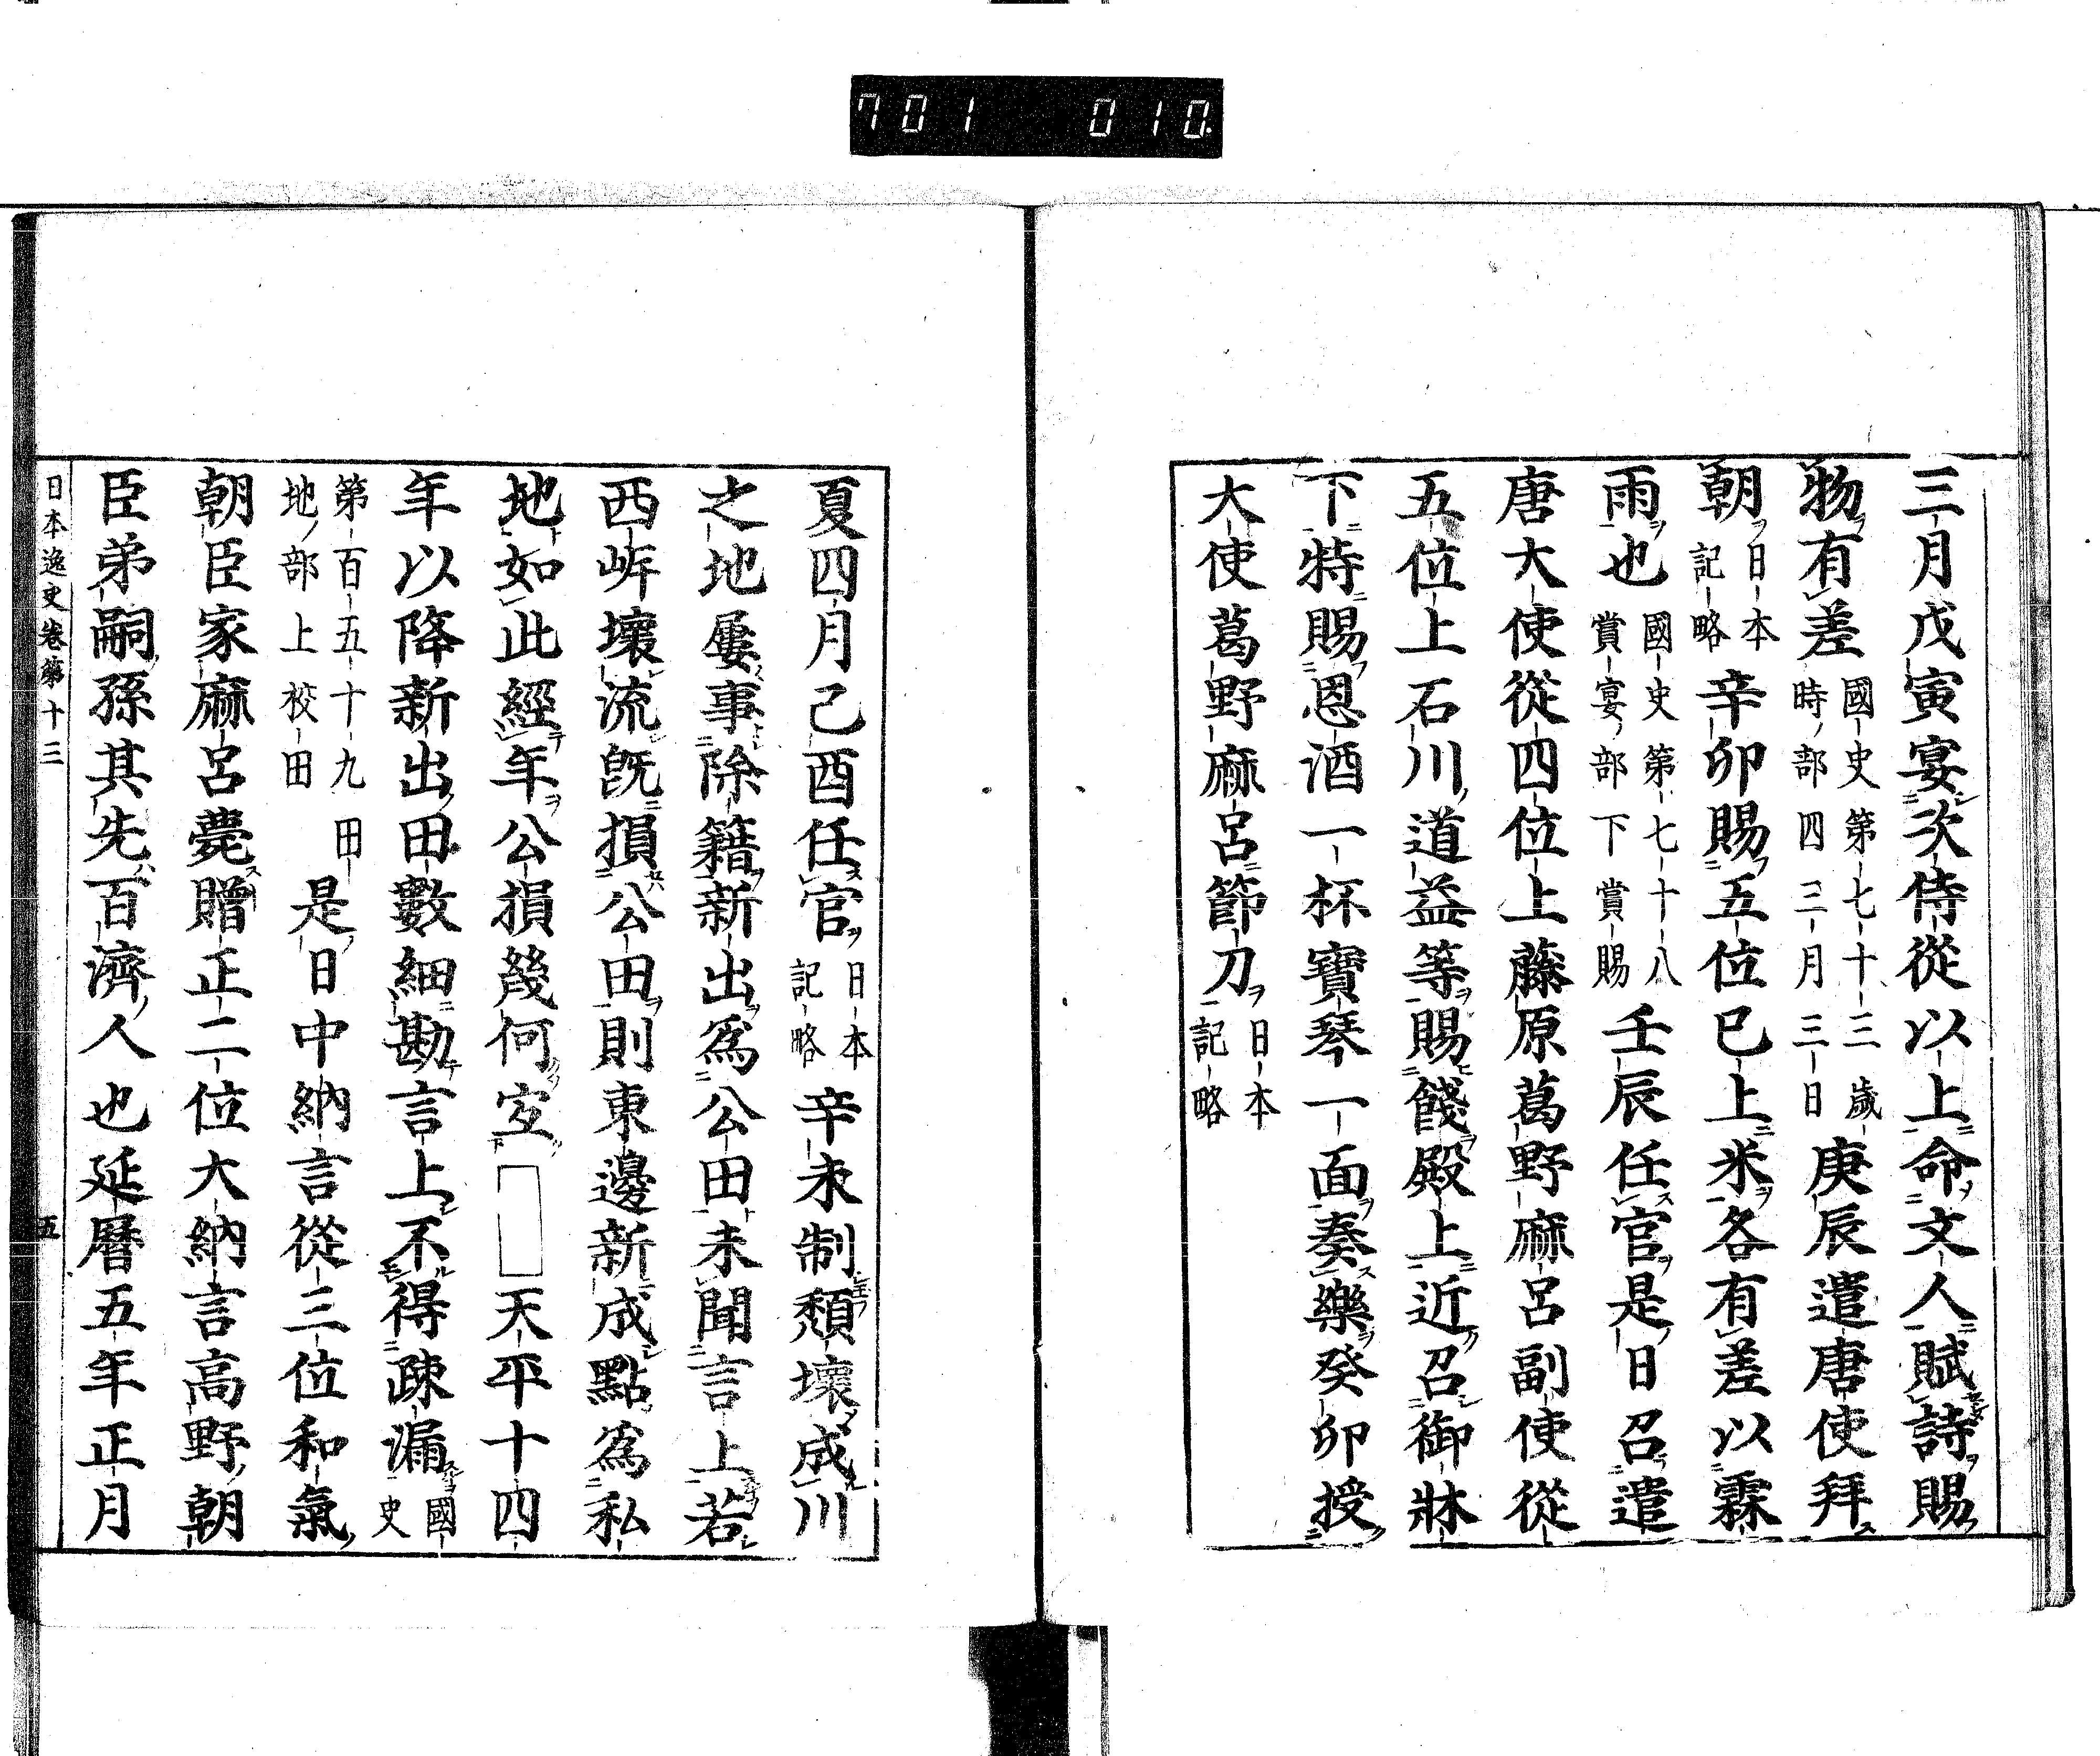 701 010
三月戊寅宴次侍從以上命文人賦詩賜
物有差 國史第七十三歲時部四三月三日 庚辰遣唐使拜
朝 日本記略 辛卯賜五位已上米各有差以霖
雨也 國史第七十八賞宴部下賞賜 壬辰任官是日召遣
唐大使從四位上藤原葛野麻呂副使從
五位上石川道益等賜餞殿上近召御牀
下特賜恩酒一杯寶琴一面奏樂癸卯授
大使葛野麻呂節刀 日本記略
夏四月己酉任官 日本記略 辛未制頽壞成川
之地屢事除籍新出爲公田未聞言上若
西岸壞流既損公田則東邊新成點爲私
地如此經年公損幾何宜 天平十四
年以降新出田數細勘言上不得疎漏 國史
第百五十九田地部上校田 是日中納言從三位和氣
朝臣家麻呂薨贈正二位大納言高野朝
臣弟嗣孫其先百濟人也延曆五年正月
日本逸史卷第十三 五